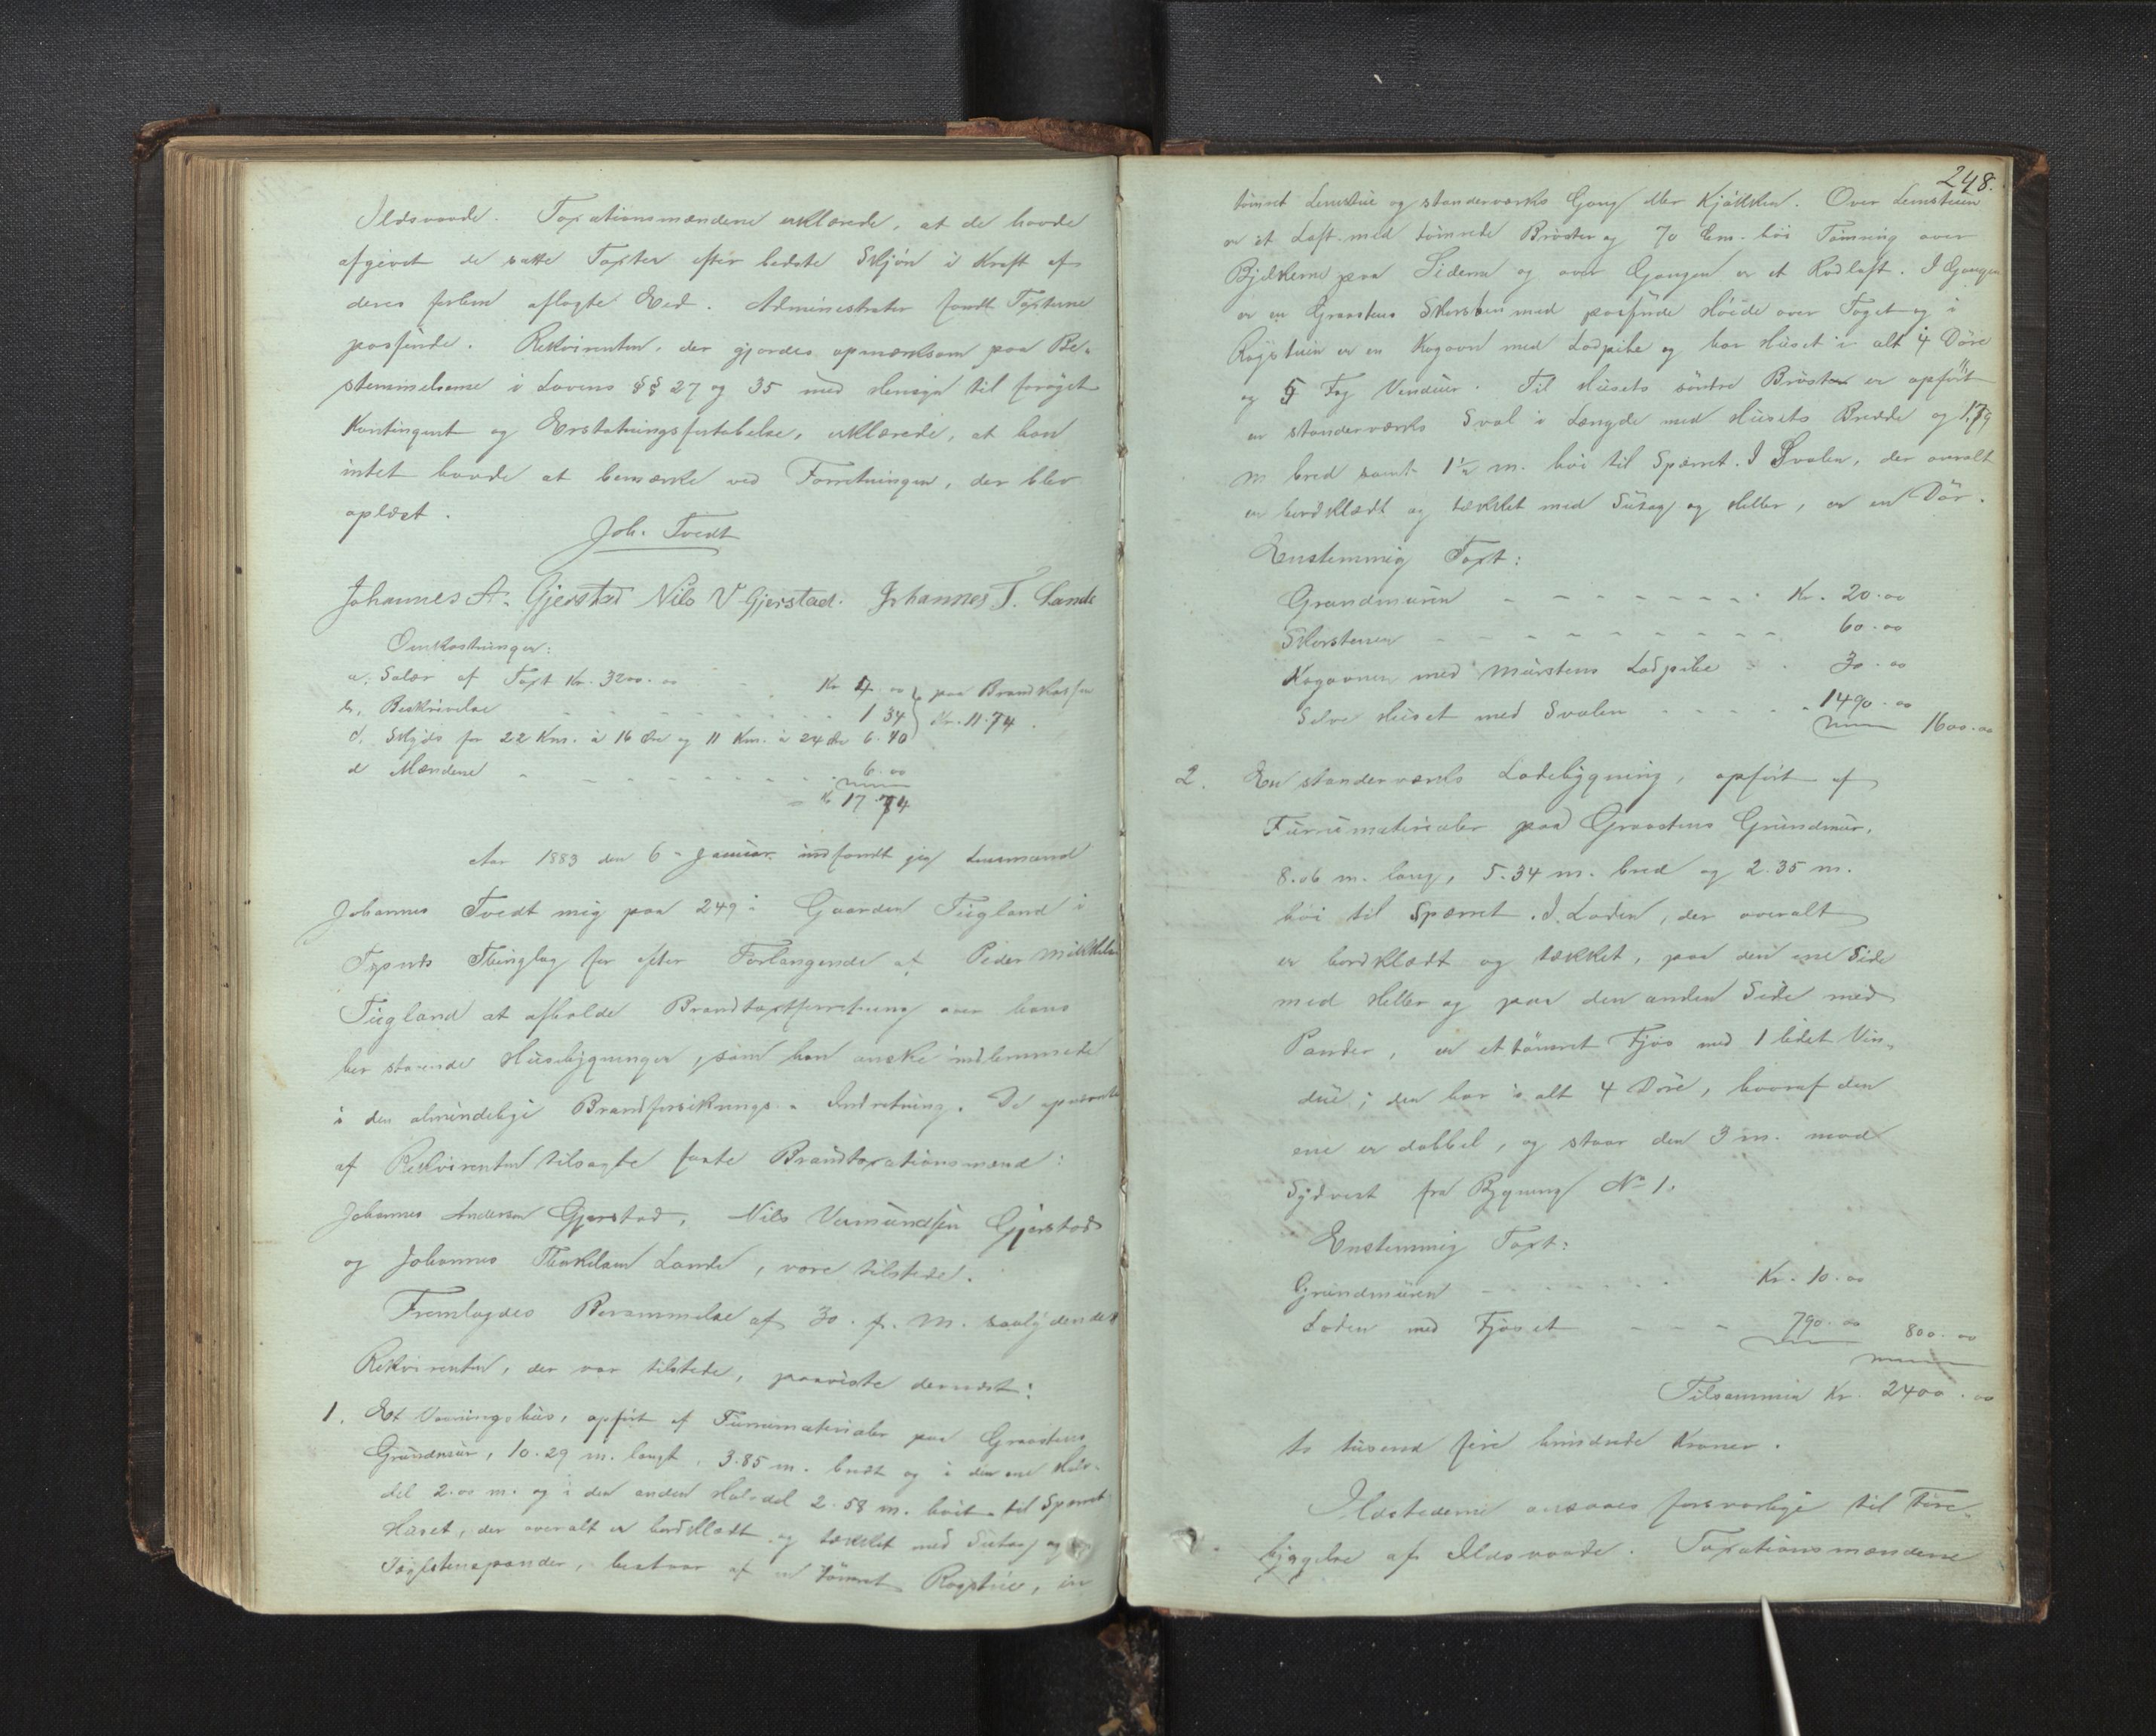 Ildsvaade. Taxationsmændene erklærede, at de havde
afgivet de satte Taxter efter bedste Skjøn i Kraft af
deres forhen aflagte Eed. Administrator fandt Taxterne
passende. Rekvirenten, der gjordes opmærksom paa Be-
stemmelserne i Lovens §§ 27 og 35 med Hensyn til forøget
Kontingent og Erstatningsfortabelse, erklærede, at han
intet havde at bemærke ved Forretningen, der blev
oplæst.
Joh. Tvedt
Johannes A. Gjerstad Nils V Gjerstad. Johannes T. Lande
Omkostninger:
a. Salær af Taxt Kr. 3200.00 Kr. 4.00 } paa Brandkassen
b. Beskrivelse 1 34 } Kr. 11.74.
c. Skyds for 22 Km. à 16 Øre og 11 Km. à 24 Øre 6.40
d Mændene 6.00
K 17.74
Aar 1883 den 6 Januar indfandt jeg Lensmand
Johannes Tvedt mig paa 249 i Gaarden Tugland i
Thinglag for efter Forlangende af Peder Mikkelsen
Tugland at afholde Brandtaxtforretning over hans
her staaende Husebygninger, som han ønske indlemmede
i den almindelige Brandforsikrings-Indretning. De opnævnte
af Rekvirenten tilsagte faste Brandtaxationsmænd:
Johannes Anderson Gjerstad, Nils Vermundsen Gjerstad
og Johannes Thorkelsen Lande, vare tilstede.
Fremlagdes Berammelse af 30. f. M. saalydende:
Rekvirenten, der var tilstede, paaviste dernæst:
1. Et Vaaningshus, opført af Furumaterialer paa Graastens
Grundmur, 10.29 m. langt, 3.85 m. bredt og i den ene Halv-
del 2.00 m. og i den anden Halvdel 2.58 m. høit til Spærret.
Huset, der overalt er bordklædt og tækket med Sutag og
Tagstenspander, bestaar af en tømret Røgstue, en
248.
tømret Lemstue og standerværks Gang eller Kjøkken. Over Lemstuen
er et Loft med tømrede Brøster og 70 Cm. høi Tømring over
Bjelkerne paa Siderne og over Gangen er et Rodloft. I Gangen
er en Graastens Skorsten med passende Høide over Taget og i
Røgstuen er en Kogovn med Ladpibe og har Huset i alt 4 Døre
og 5 Fag Vinduer. Til Husets søndre Brøster er opført
en standerværks Sval i Længde med Husets Bredde og 1.79
m bred samt 1½ m. høi til Spærret. I Svalen, der overalt
er bordklædt og tækket med Sutag og Heller, er en Dør.
Enstemmig Taxt:
Grundmuren Kr. 20.00
Skorstenen 60.00
Kogovnen med Murstens Ladpibe 30.00
Selve Huset med Svalen 1490.00
1600.00
2. En standerværks Ladebygning, opført af
Furumaterialer paa Graastens Grundmur,
8.06 m. lang, 5.34 m. bred og 2.35 m.
høi til Spærret. I Laden, der overalt
er bordklædt og tækket, paa den ene Side
med Heller og paa den anden Side med
Pander, er et tømret Fjøs med 1 lidet Vin-
due; den har i alt 4 Døre, hvoraf den
ene er dobbel, og staar den 3 m. mod
Sydvest fra Bygning No 1.
Enstemmig Taxt:
Grundmuren Kr. 10.00
Laden med Fjøset 790.00 800.00
Tilsammen Kr. 2400.00
to tusend fire hundrede Kroner.
Ildstederne ansaaes forsvarlige til Fore-
byggelse af Ildsvaade. Taxationsmændene